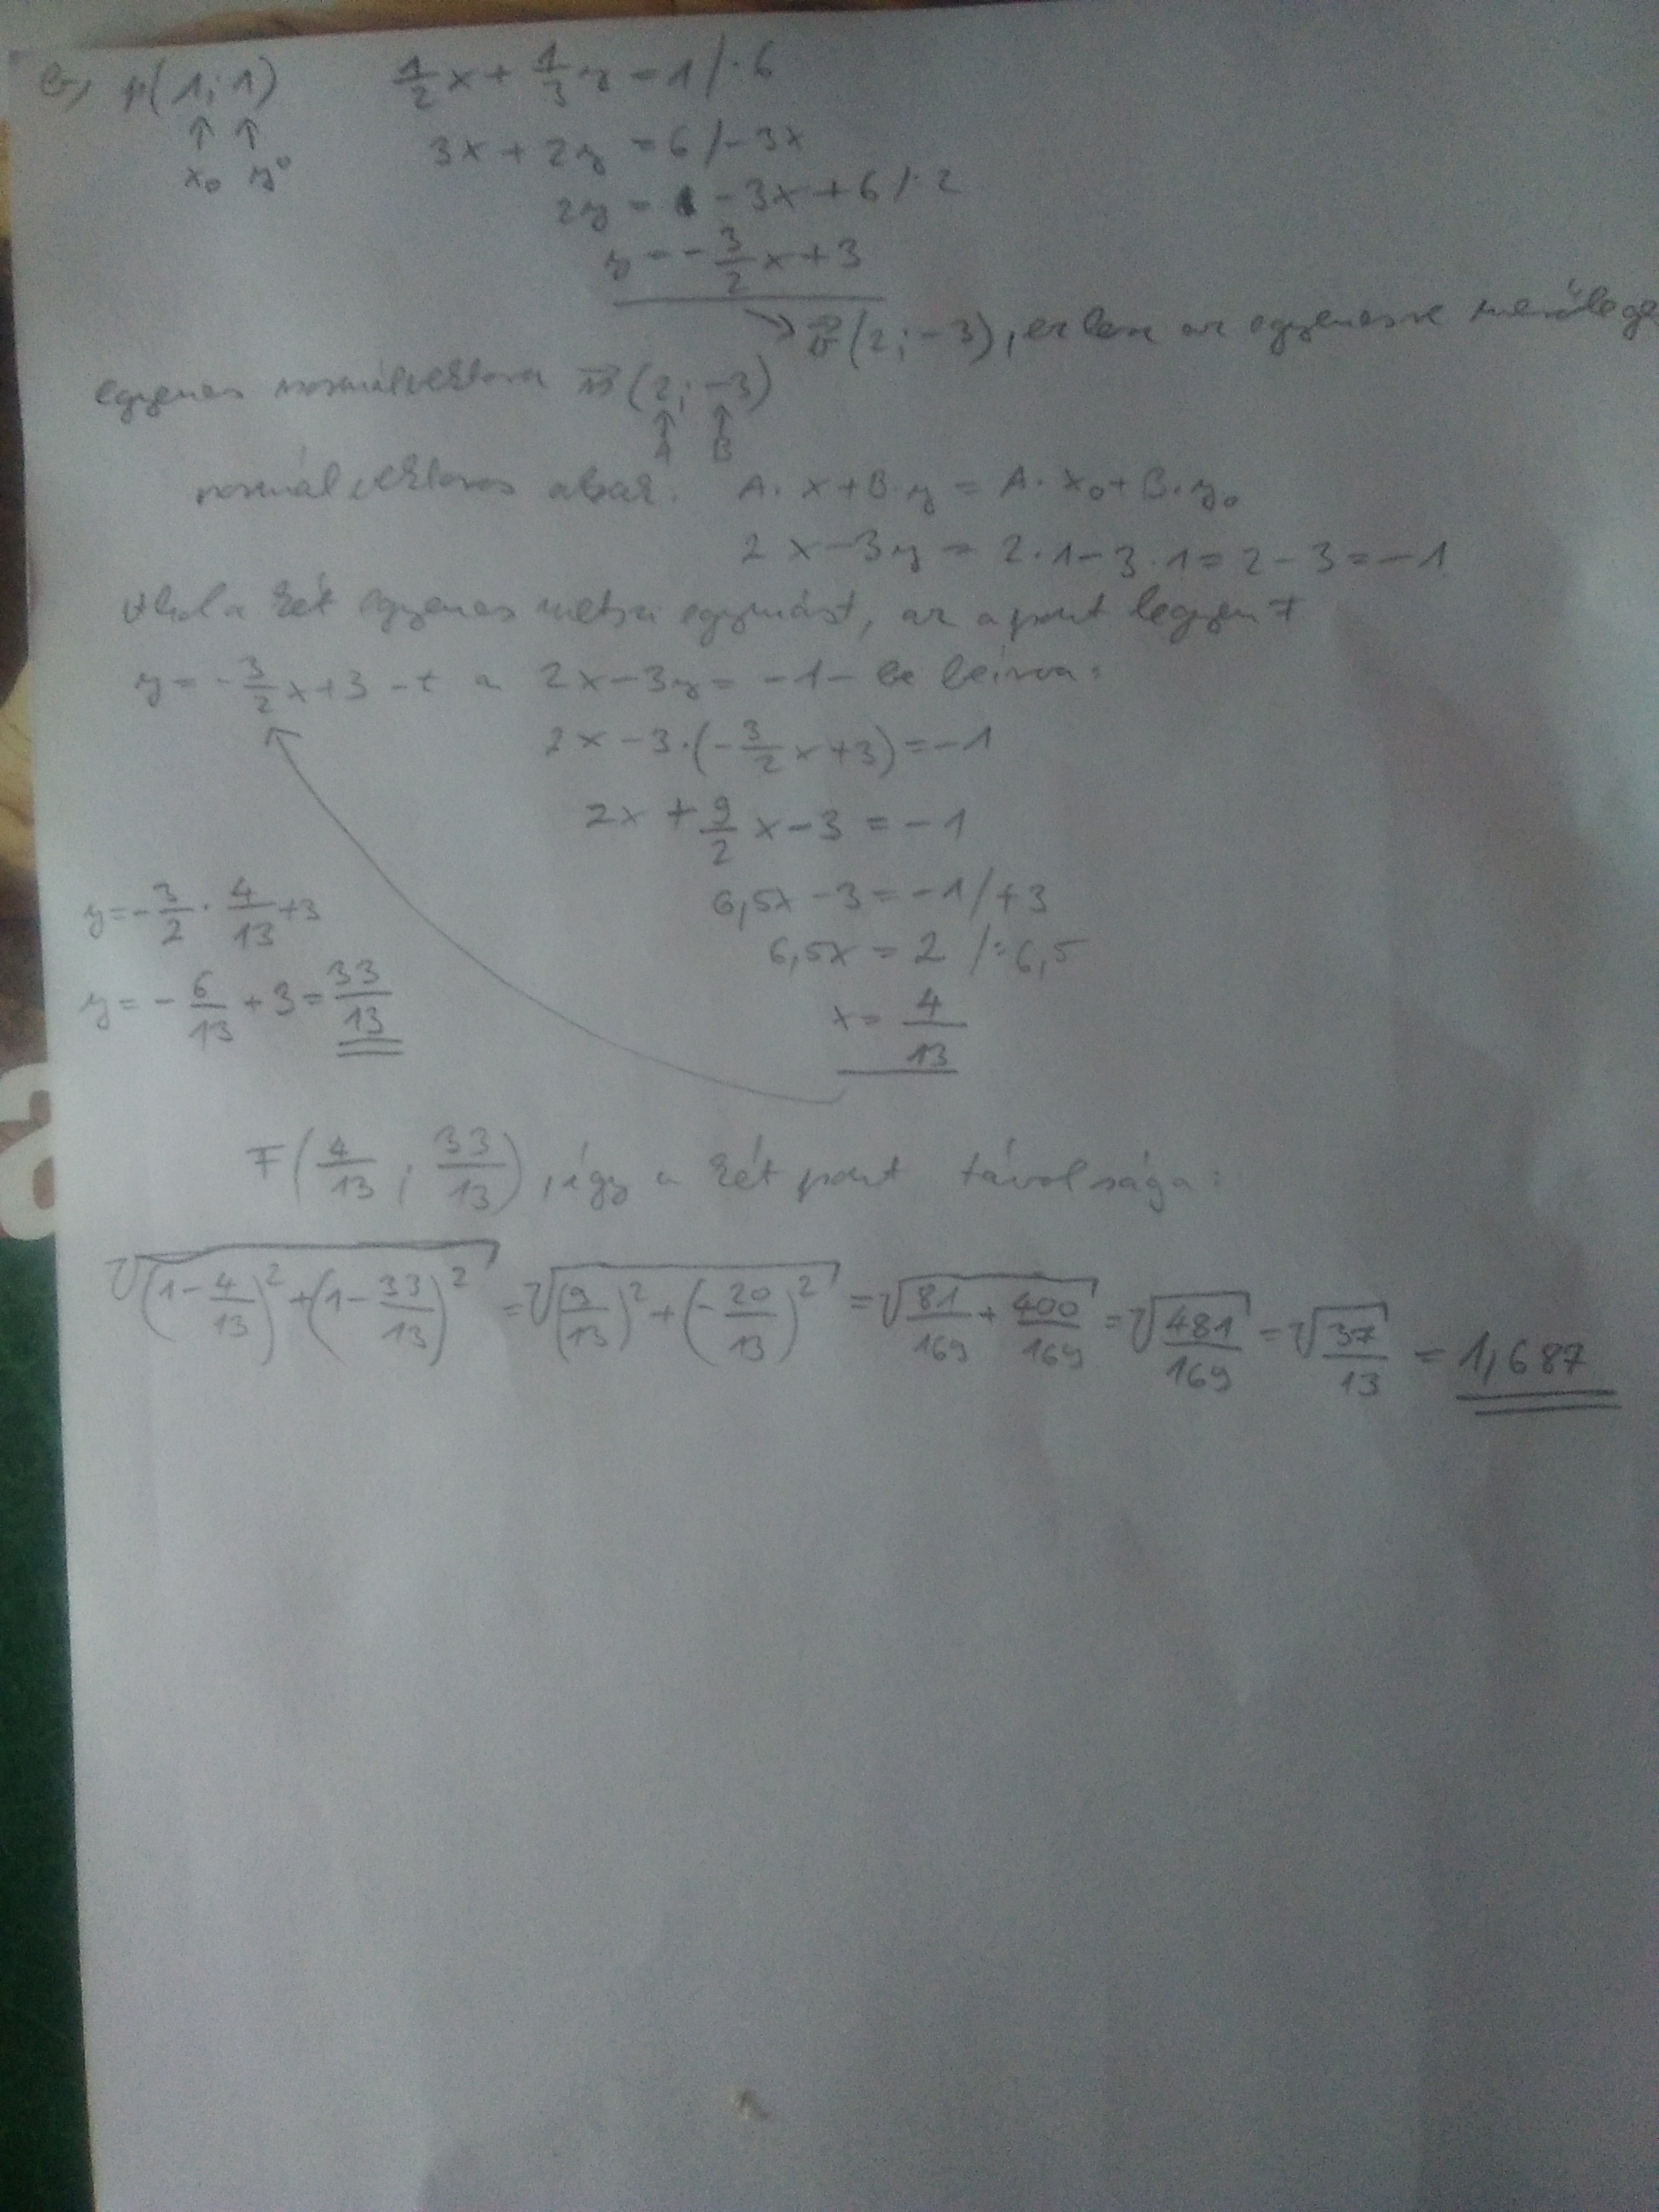 b, P(1;1) 1/2x + 1/3y = 1 /·6
↑ ↑
x₀ y₀
3x + 2y = 6 /-3x
2y = -3x + 6 /:2
y = -3/2x + 3
→ v⃗(2;-3), ez lesz az egyenesre merőleges
egyenes normálvektora n⃗(2;-3)
↑ ↑
A B
normálvektoros alak: A·x + B·y = A·x₀ + B·y₀
2x - 3y = 2·1 - 3·1 = 2 - 3 = -1
Ahol a két egyenes metszi egymást, az a pont legyen F
y = -3/2x + 3 -t a 2x - 3y = -1 - be beírva:
2x - 3·(-3/2x + 3) = -1
2x + 9/2x - 3 = -1
6,5x - 3 = -1 /+3
6,5x = 2 /:6,5
x = 4/13
y = -3/2 · 4/13 + 3
y = -6/13 + 3 = 33/13
F(4/13; 33/13), így a két pont távolsága:
√((1 - 4/13)² + (1 - 33/13)²) = √((9/13)² + (-20/13)²) = √(81/169 + 400/169) = √(481/169) = √(37/13) = 1,687